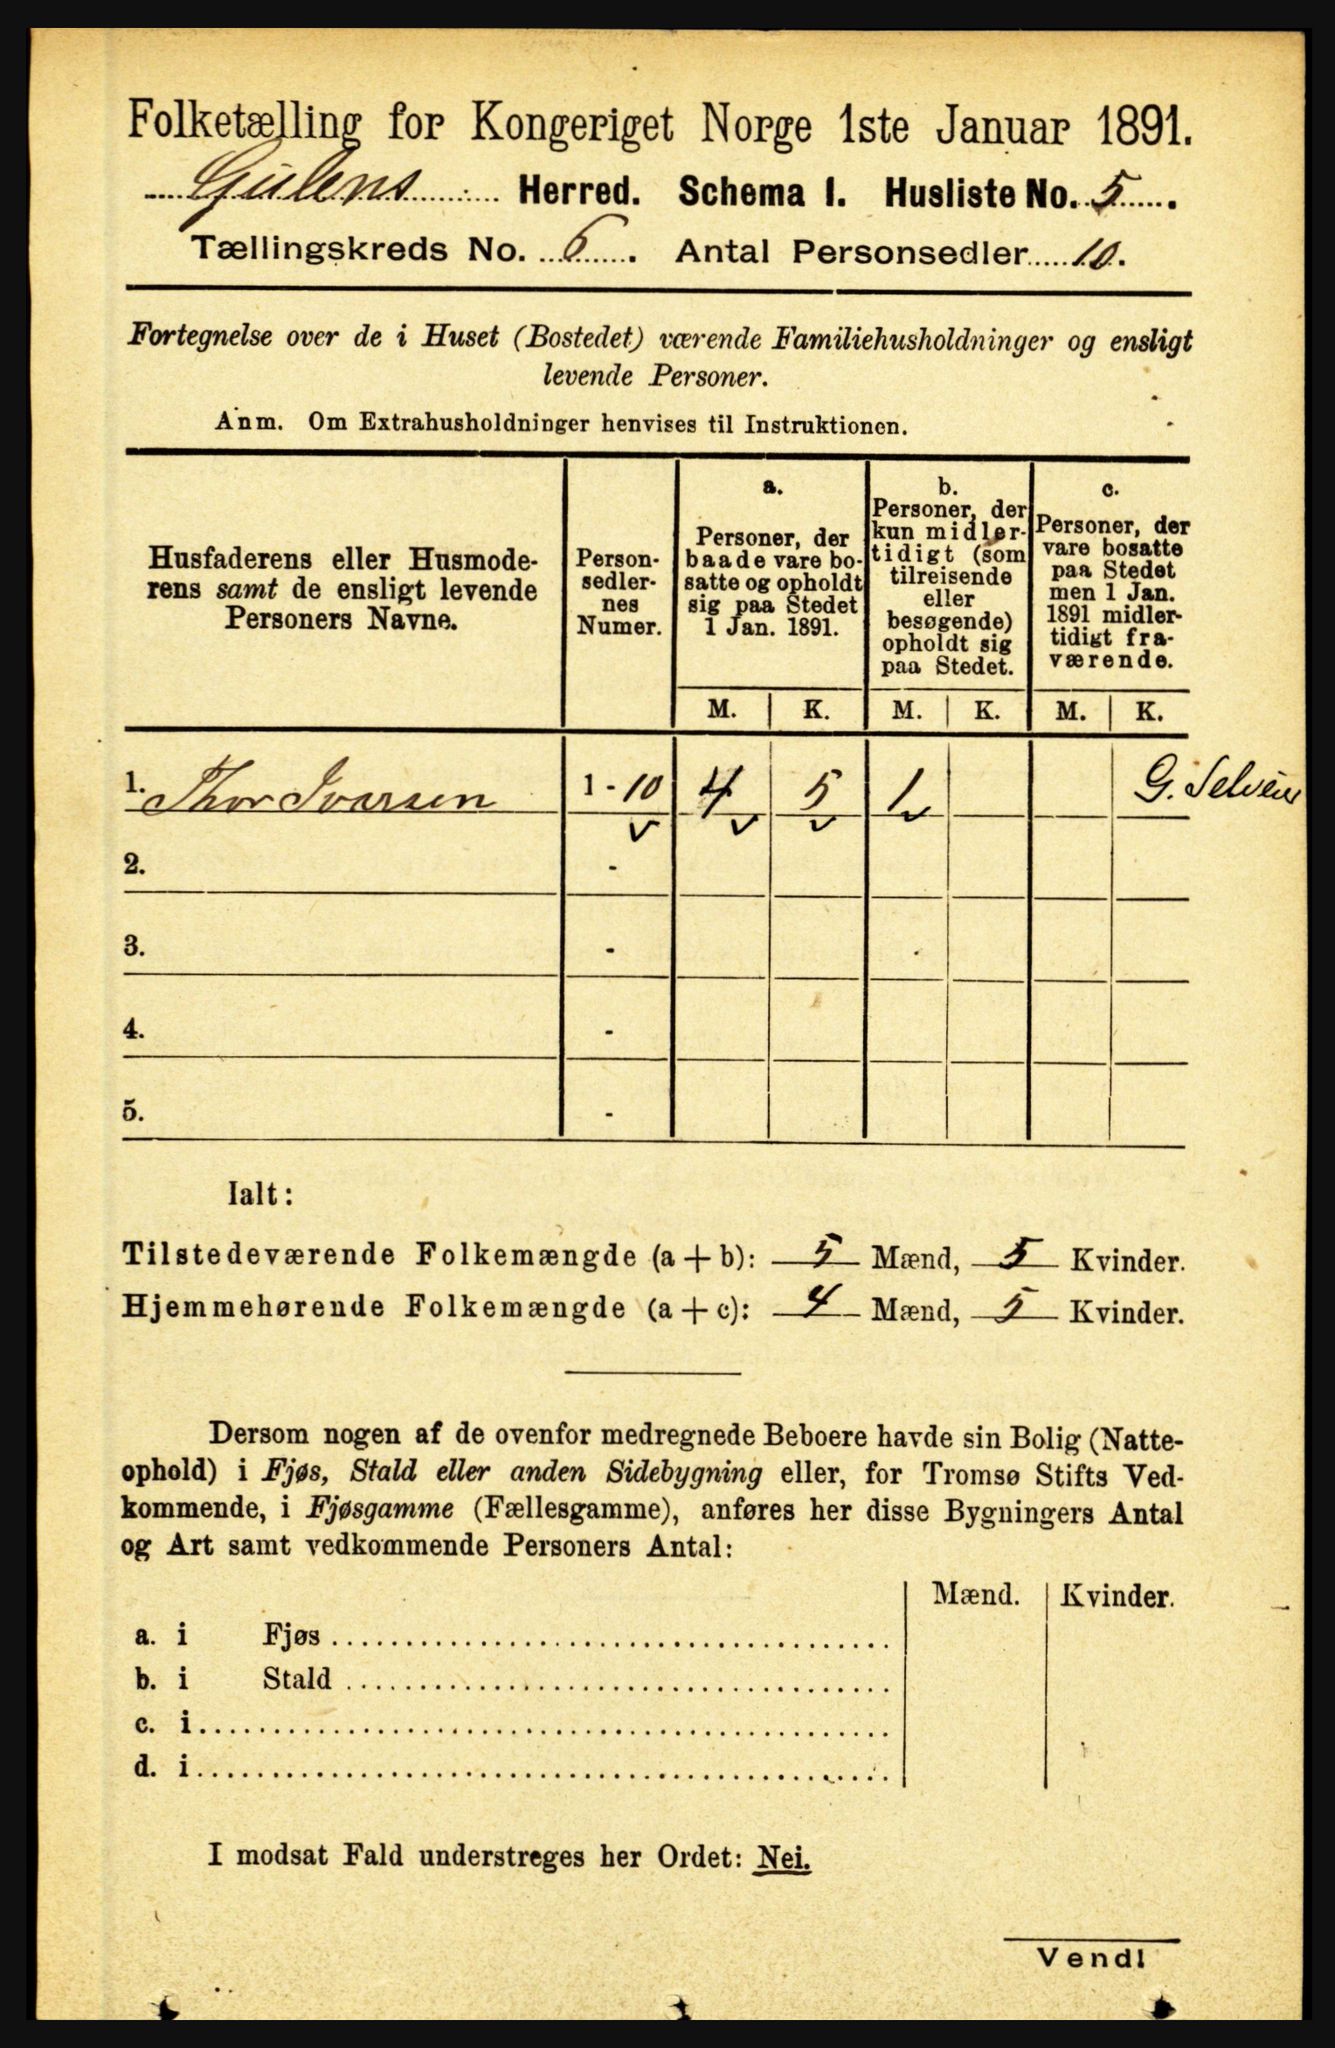 Folketælling for Kongeriget Norge 1ste Januar 1891.
Gulens Herred. Schema I. Husliste No. 5.
Tællingskreds No. 6. Antal Personsedler 10.
Fortegnelse over de i Huset (Bostedet) værende Familiehusholdninger og ensligt
levende Personer.
Anm. Om Extrahusholdninger henvises til Instruktionen.
Husfaderens eller Husmode-
rens samt de ensligt levende
Personers Navne.
Person-
sedler-
nes
Numer.
a.
Personer, der
baade vare bo-
satte og opholdt
sig paa Stedet
1 Jan. 1891.
b.
Personer, der
kun midler-
tidigt (som
tilreisende
eller
besøgende)
opholdt sig
paa Stedet.
c.
Personer, der
vare bosatte
paa Stedet
men 1 Jan.
1891 midler-
tidigt fra-
værende.
M. K. M. K. M. K.
1. Thor Ivarsen 1 - 10 4 5 1 G.
2. -
3. -
4. -
5. -
Ialt:
Tilstedeværende Folkemængde (a + b): 5 Mænd, 5 Kvinder.
Hjemmehørende Folkemængde (a + c): 4 Mænd, 5 Kvinder.
Dersom nogen af de ovenfor medregnede Beboere havde sin Bolig (Natte-
ophold) i Fjøs, Stald eller anden Sidebygning eller, for Tromsø Stifts Ved-
kommende, i Fjøsgamme (Fællesgamme), anføres her disse Bygningers Antal
og Art samt vedkommende Personers Antal:
Mænd. Kvinder.
a. i Fjøs
b. i Stald
c. i
d. i
I modsat Fald understreges her Ordet: Nei.
Vend!